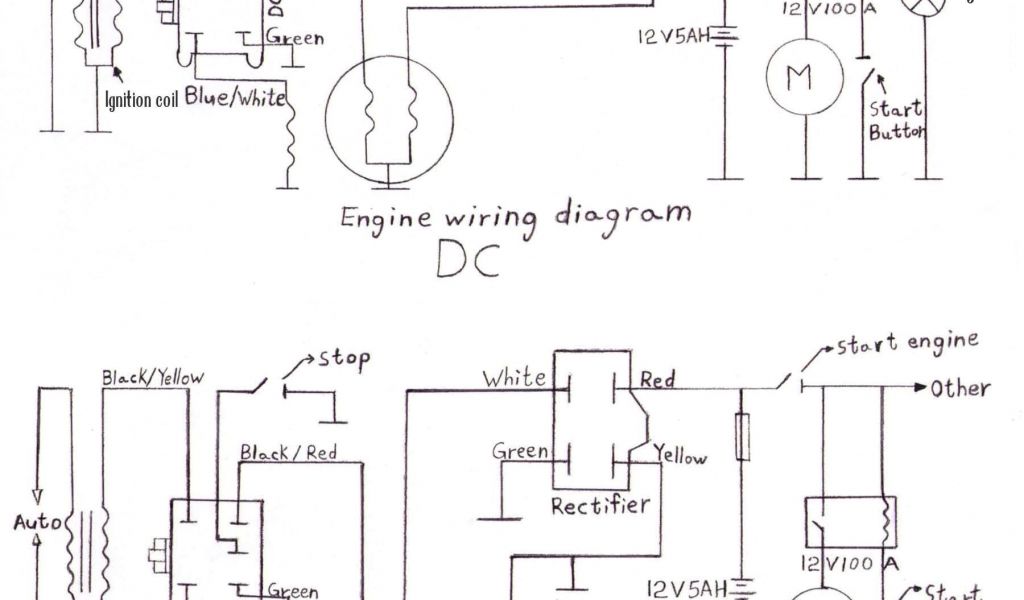 DC
12V100A
Green
12V5AH
M
Ignition coil
Blue/White
Start
Button
Engine wiring diagram
DC
start engine
stop
Black/Yellow
White
Red
Other
Black/Red
Green
Yellow
Rectifier
Auto
12V100A
Green
12V5AH
Start